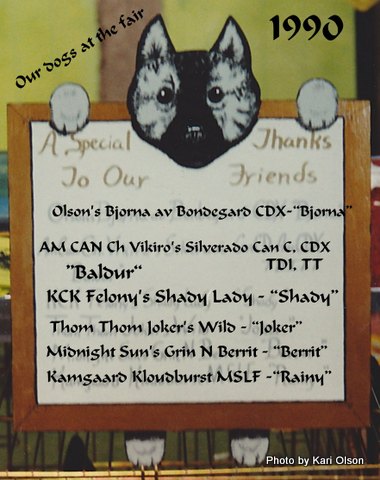 Our dogs at the fair
1990
A Special Thanks
To Our Friends
Olson's Bjorna av Bondegard CDX-“Bjorna”
AM CAN Ch Vikiro's Silverado Can C. CDX
TDI, TT
"Baldur“
KCK Felony's Shady Lady - “Shady”
Thom Thom Joker's Wild - “Joker”
Midnight Sun's Grin N Berrit - “Berrit”
Kamgaard Kloudburst MSLF -“Rainy”
Photo by Kari Olson